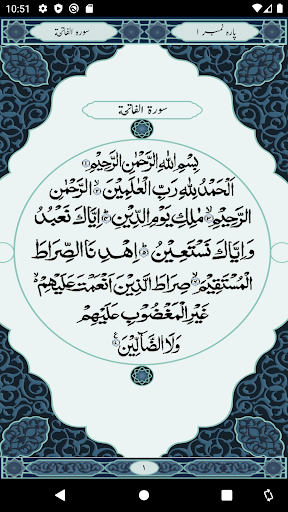 10:51
پارہ نمبر ۱
سورة الفاتحة
سورة الفاتحة
بِسْمِ اللهِ الرَّحْمٰنِ الرَّحِيْمِ ۝۱
اَلْحَمْدُ لِلّٰهِ رَبِّ الْعٰلَمِيْنَ ۝ الرَّحْمٰنِ
الرَّحِيْمِ ۝ مٰلِكِ يَوْمِ الدِّيْنِ ۝ اِيَّاكَ نَعْبُدُ
وَاِيَّاكَ نَسْتَعِيْنُ ۝ اِهْدِنَا الصِّرَاطَ
الْمُسْتَقِيْمَ ۝ صِرَاطَ الَّذِيْنَ اَنْعَمْتَ عَلَيْهِمْ
غَيْرِ الْمَغْضُوْبِ عَلَيْهِمْ
وَلَا الضَّآلِّيْنَ
۱